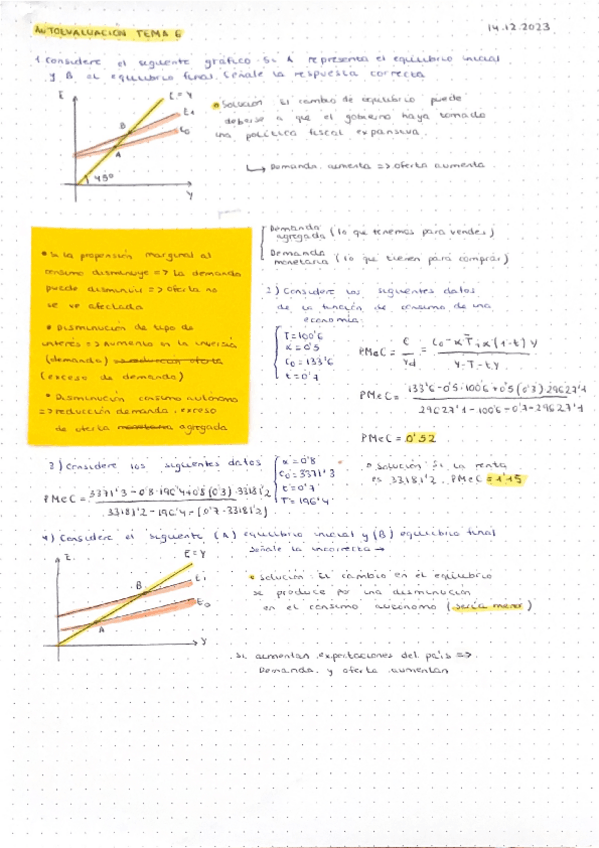 AUTOEVALUACION TEMA 6
14.12.2023
1 Considere el siguiente gráfico. Si A representa el equilibrio inicial
y B el equilibrio final. Señale la respuesta correcta
E
E = Y
E1
E0
B
A
45º
Y
Solución El cambio de equilibrio puede
deberse a que el gobierno haya tomado
una política fiscal expansiva.
↳ Demanda aumenta => oferta aumenta
• Si la propensión marginal al
consumo disminuye => la demanda
puede disminuir => oferta no
se ve afectada
• Disminución de tipo de
interés => Aumento en la inversión
(demanda)
(exceso de demanda)
• Disminución consumo autónomo
=> reducción demanda, exceso
de oferta agregada
Demanda agregada (lo que tenemos para vender)
Demanda monetaria (lo que tienen para comprar)
2) Considere los siguientes datos
de la función de consumo de una
economía:
T = 100'6
α = 0'5
C0 = 133'6
t = 0'7
PMeC = C / Yd = C0 - α T + α (1 - t) Y / Y - T - tY
PMeC = 133'6 - 0'5 · 100'6 + 0'5 (0'3) 29627'1 / 29627'1 - 100'6 - 0'7 · 29627'1
PMeC = 0'52
3) Considere los siguientes datos
α = 0'8
C0 = 3371'3
t = 0'7
T = 196'4
PMeC = 3371'3 - 0'8 · 196'4 + 0'8 (0'3) · 33181'2 / 33181'2 - 196'4 - (0'7 · 33181'2)
Solución Si la renta
es 33181'2, PMeC = 1'15
4) Considere el siguiente (A) equilibrio inicial y (B) equilibrio final
Señale la incorrecta →
E
E = Y
E1
E0
B
A
Y
• Solución: El cambio en el equilibrio
se produce por una disminución
en el consumo autónomo (sería menor)
. Si aumentan exportaciones del país =>
Demanda y oferta aumentan